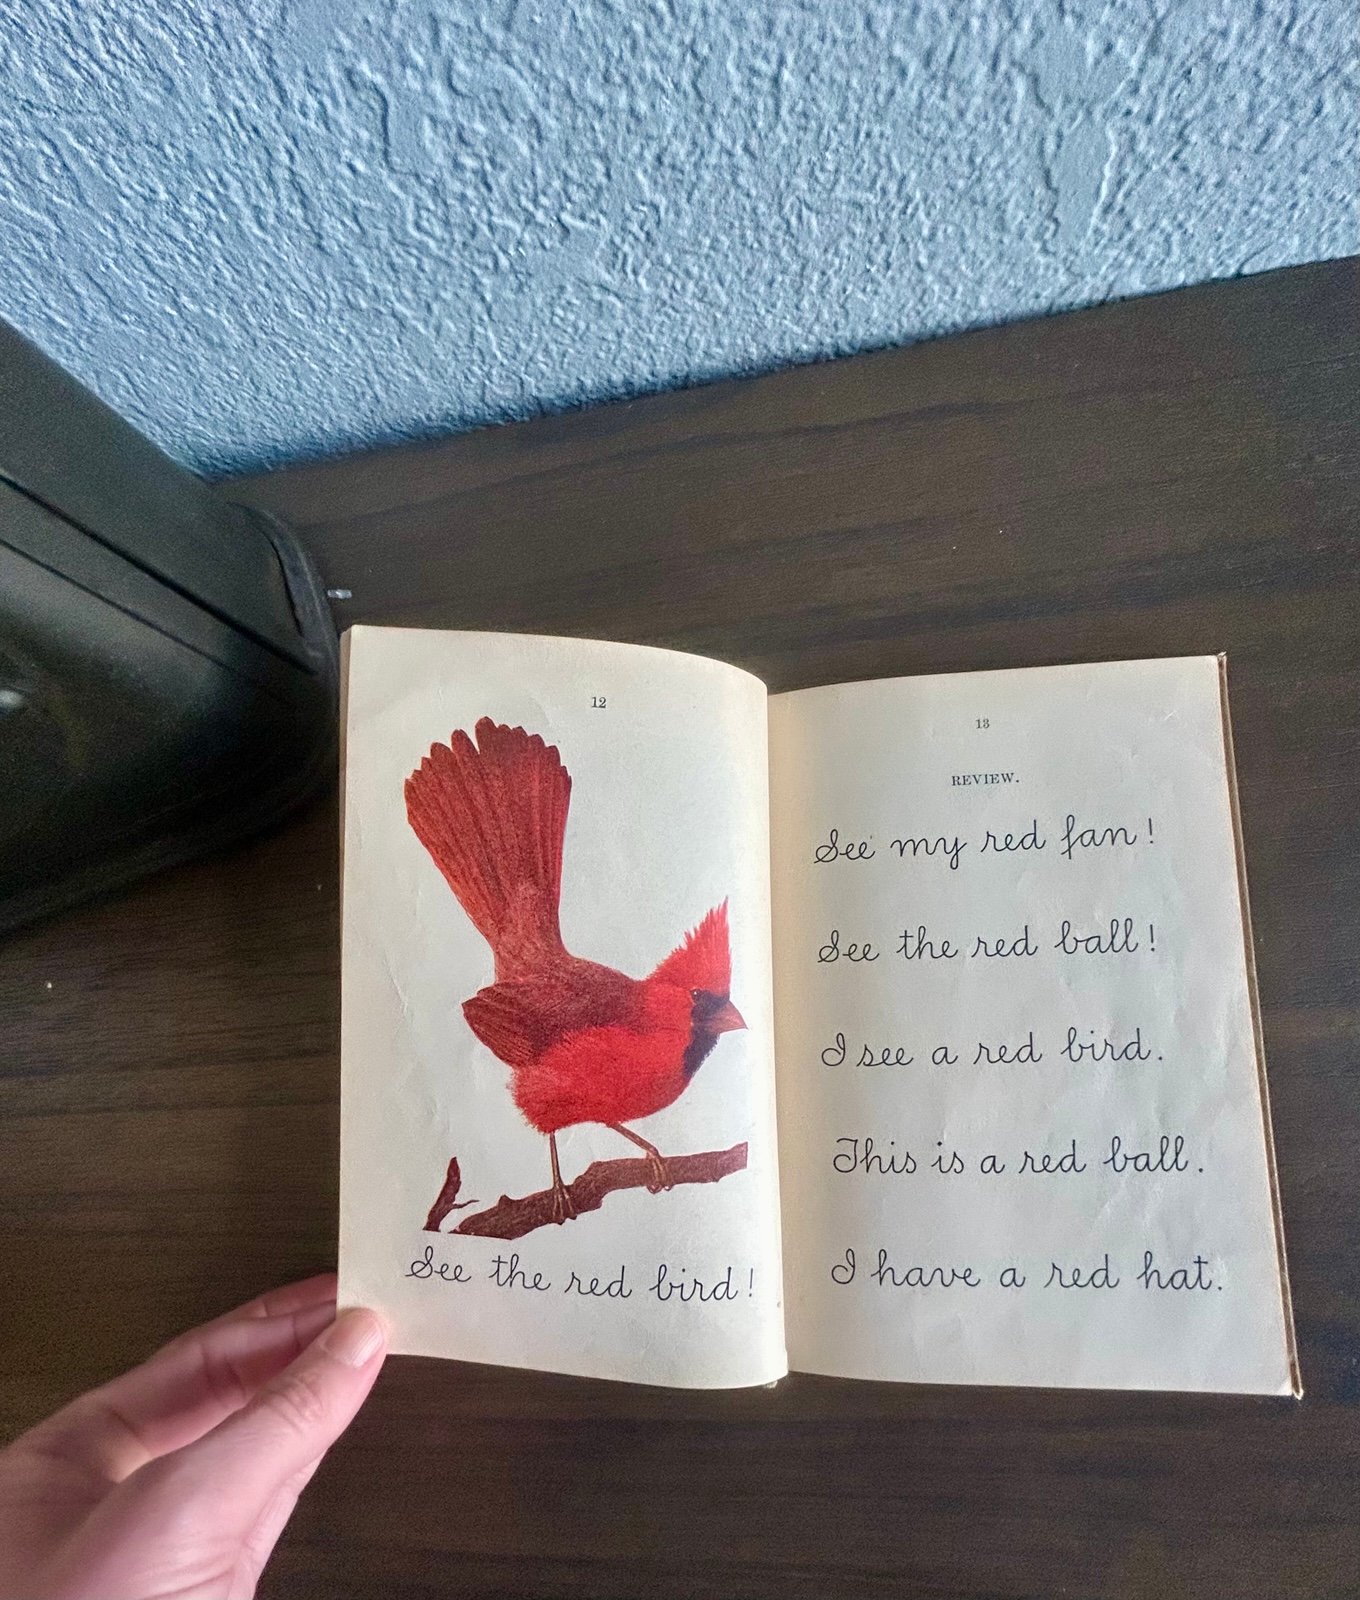 12
See the red bird!
13
REVIEW.
See my red fan!
See the red ball!
I see a red bird.
This is a red ball.
I have a red hat.